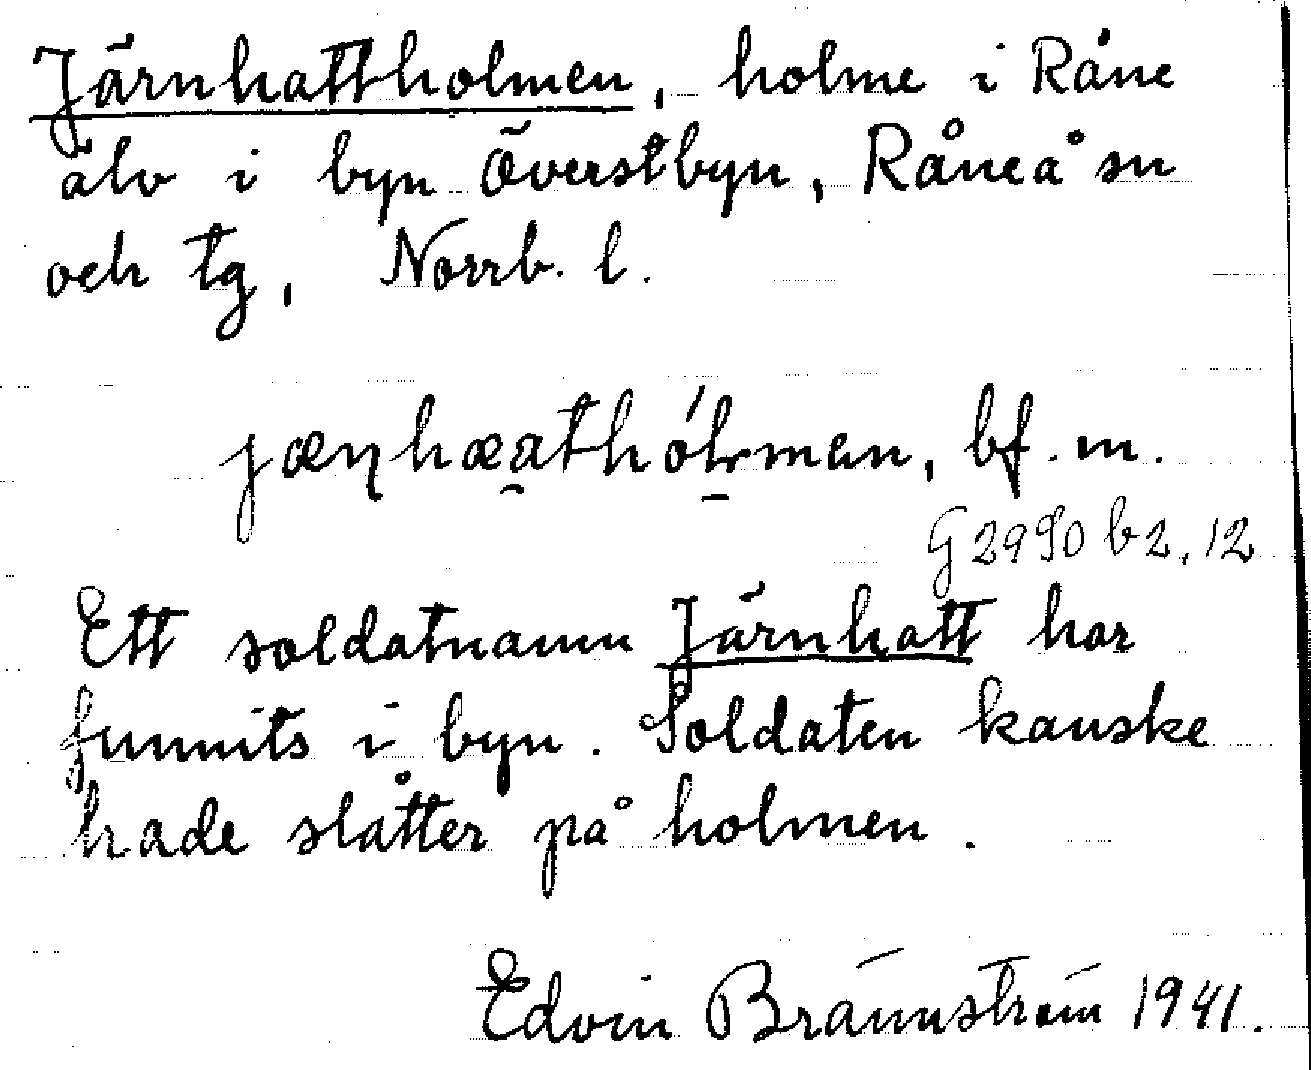 Järnhattholmen, holme i Råne
älv i byn Överstbyn, Råneå sn
och tg, Norrb. l.
bf. m.
G 2990 b2, 12
Ett soldatnamn Järnhatt har
funnits i byn. Soldaten kanske
hade slåtter på holmen.
Edvin Brännström 1941.